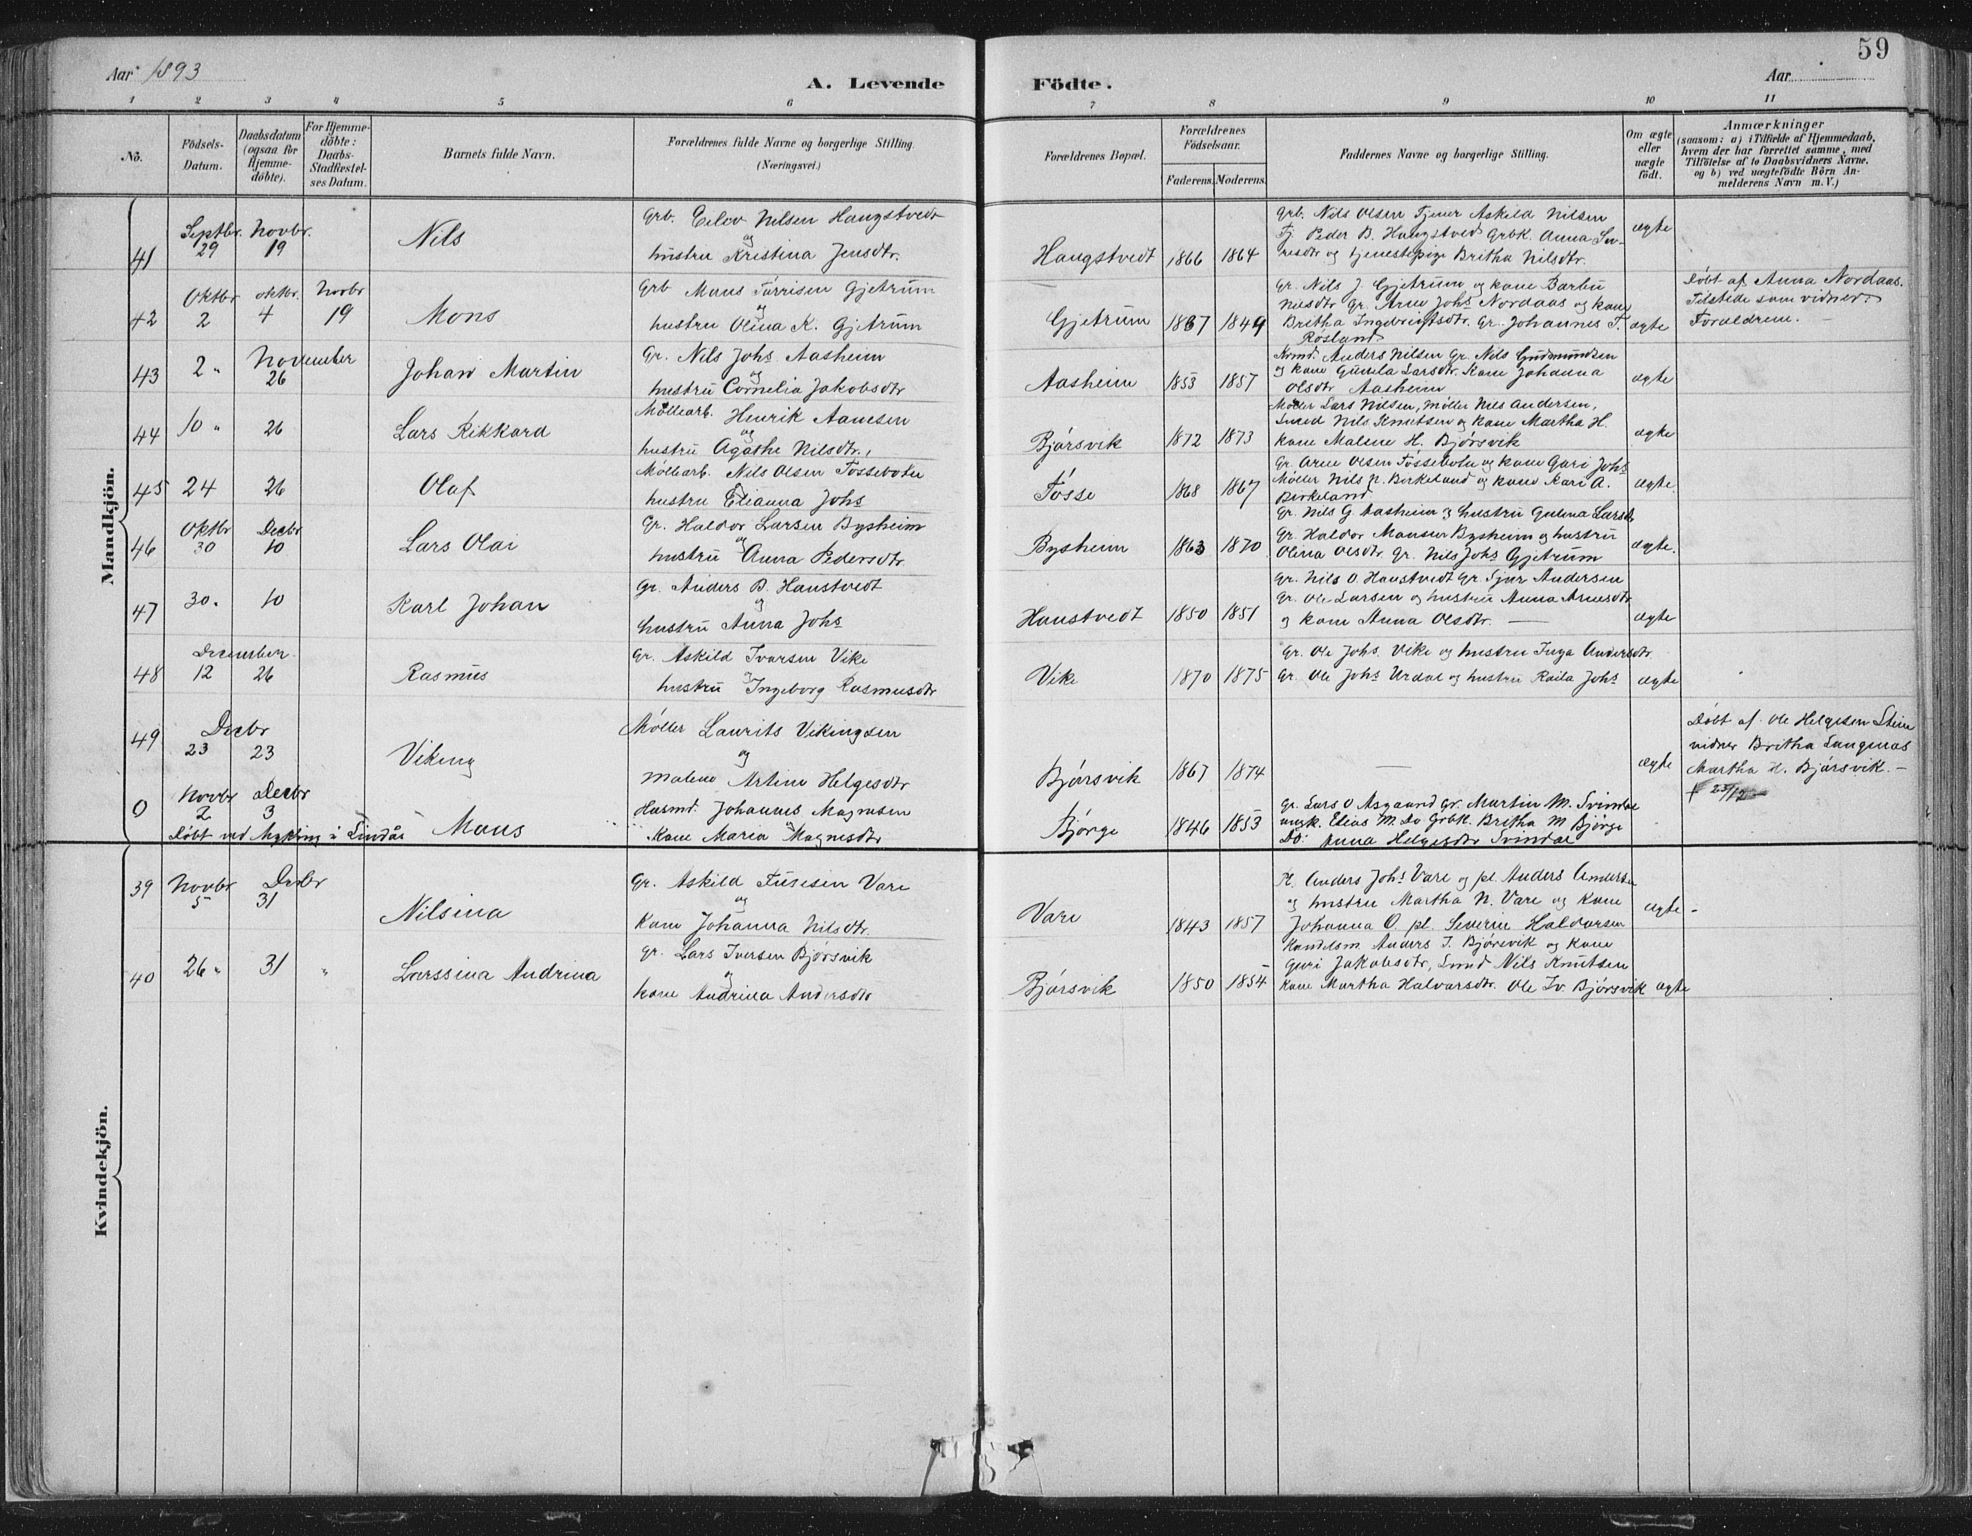 59
Aar 1893
A. Levende
Födte.
Aar
1 2 3 4 5 6 7 8 9 10 11
No.
Födsels-Datum.
Daabsdatum (ogsaa for Hjemme-döbte).
For Hjemme-döbte: Daabs-Stadfæstel-ses Datum.
Barnets fulde Navn.
Forældrenes fulde Navne og borgerlige Stilling.
(Næringsvei.)
Forældrenes Bopæl.
Forældrenes Födselsaar.
Faderens. Moderens.
Faddernes Navne og borgerlige Stilling.
Om ægte eller uægte födt.
Anmærkninger
(saasom: a) i Tilfælde af Hjemmedaab, hvem der har forrettet samme, med Tilföielse af to Daabsvidners Navne. og b) ved uægtefödte Börn Anmelderens Navn m. V.)
Mandkjön.
41 Septbr. 29 Novbr. 19 Nils
Grb. Eilov Nilsen Haugstvedt
og
hustru Kristina Jensdtr.
Haugstvedt 1866 1864
Grb. Nils Olsen Tjener Askild Nilsen
Tj. Peder B. Haugstved Grbk. Anna
og tjenestepige Britha Nilsdtr.
ægte
42 Oktbr 2 Oktbr. 4 Novbr 19 Mons
Grb Mons Torrisen Gjetrum
og
hustru Olina K. Gjetrum
Gjetrum 1867 1849
Gr. Nils J. Gjetrum og kone Barbu
Nilsdtr Gr. Arne Johs Nordaas og kone
Britha Ingebrigtsdtr. Gr. Johannes T.
Røsland
ægte
Døbt af Anna Nordaas.
Tilstede som vidner:
Forældrene. -
43 2 " November 26 Johan Martin
Gr. Nils Johs Aasheim
og
hustru Cornelia Jakobsdtr
Aasheim 1853 1857
Anders Nilsen Gr. Nils Gudmundsen
og kone Gunila Larsdtr. Kone Johanna
Olsdtr Aasheim
ægte
44 10 " 26 Lars Rikkard
Møllearb. Henrik Aamesen
og
hustru Agathe Nilsdtr.
Bjørsvik 1872 1873
Møller Lars Nilsen, Møller Nils Andersen,
Smed Nils Knutsen og kone Martha H.
kone Malene H. Bjørsvik
ægte
45 24 26 Olaf
Møllearb. Nils Olsen Fossebotn
hustru Elianna Johs
Fosse 1868 1867
Gr. Arne Olsen Fossebotn og kone Guri Johs
Møller Nils N. Birkeland og kone Kari A.
Birkeland
ægte.
46 Oktbr 30 Decbr 10 Lars Olai
Gr. Haldor Larsen Bysheim
og
hustru Anna Pedersdtr
Bysheim 1863 1870
Gr. Nils G. Aasheim og hustru Gulina Larsd
Gr. Haldor Monsen Bysheim og hustru
Olina Olsdtr Gr. Nils Johs Gjetrum
ægte.
47 30 " 10 Karl Johan
Gr. Anders B. Haustvedt
og
hustru Anna Johs
Haustvedt 1850 1851
Gr. Nils O Haustvedt Gr. Sjur Andersen
Gr. Ole Larsen og hustru Anna Arnesdtr
og kone Anna Olsdtr. —
ægte
48 December 12 26 Rasmus
Gr. Askild Ivarsen Vike
og
hustru Ingeborg Rasmusdtr
Vike 1870 1875
Gr. Ole Johs. Vike og hustru Inga Andersdtr
Gr. Ole Johs Urdal og hustru Raila Johs
ægte
49 Decbr 23 23 Viking
Møller Laurits Vikingsen
og
Malene Artine Helgesdtr
Bjørsvik 1867 1874
—
ægte
Døbt af Ole Helgesen Stine
vidner Britha Langenæs
Martha H. Bjørsvik. -
0 Novbr 2 Decbr 3 Mons
Døbt ved Myking i Lindås
Husmd. Johannes Magnesen
og
Kone Maria Magnesdtr
Bjørge 1846 1853
Gr. Lars O Asgaard Gr. Martin M. Svindal
ungk. Elias M. Do Grbk. Britha M Bjørge
Do: Anna Helgesdtr Svindal
Kvindekjön.
39 Novbr 5 Decbr 31 Nilsina
Gr. Askild Tufesen Vare
og
Kone Johanna Nilsdtr.
Vare 1843 1857
Pl. Anders Johs Vare og pl. Anders Anderse
og hustru Martha N. Vare og Kone
Johanna O. pl. Severin Haldorsen
ægte -
40 26 " 31 " Larssina Andrina
Gr. Lars Iversen Bjørsvik
og
Kone Andrina Andersdtr
Bjørsvik 1850 1854
Handelsm. Anders I. Bjørsvik og Kone
Guri Jakobsdtr, Smed Nils Knutsen
Kone Martha Halvorsdtr. Ole Iv. Bjørsvik
ægte